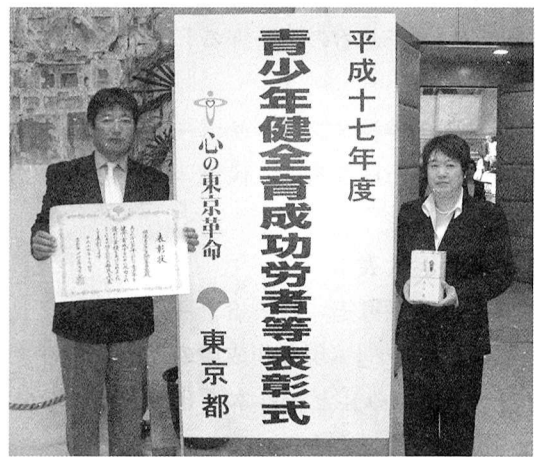 平成十七年度
青少年健全育成功労者等表彰式
心の東京革命
東京都
表彰状